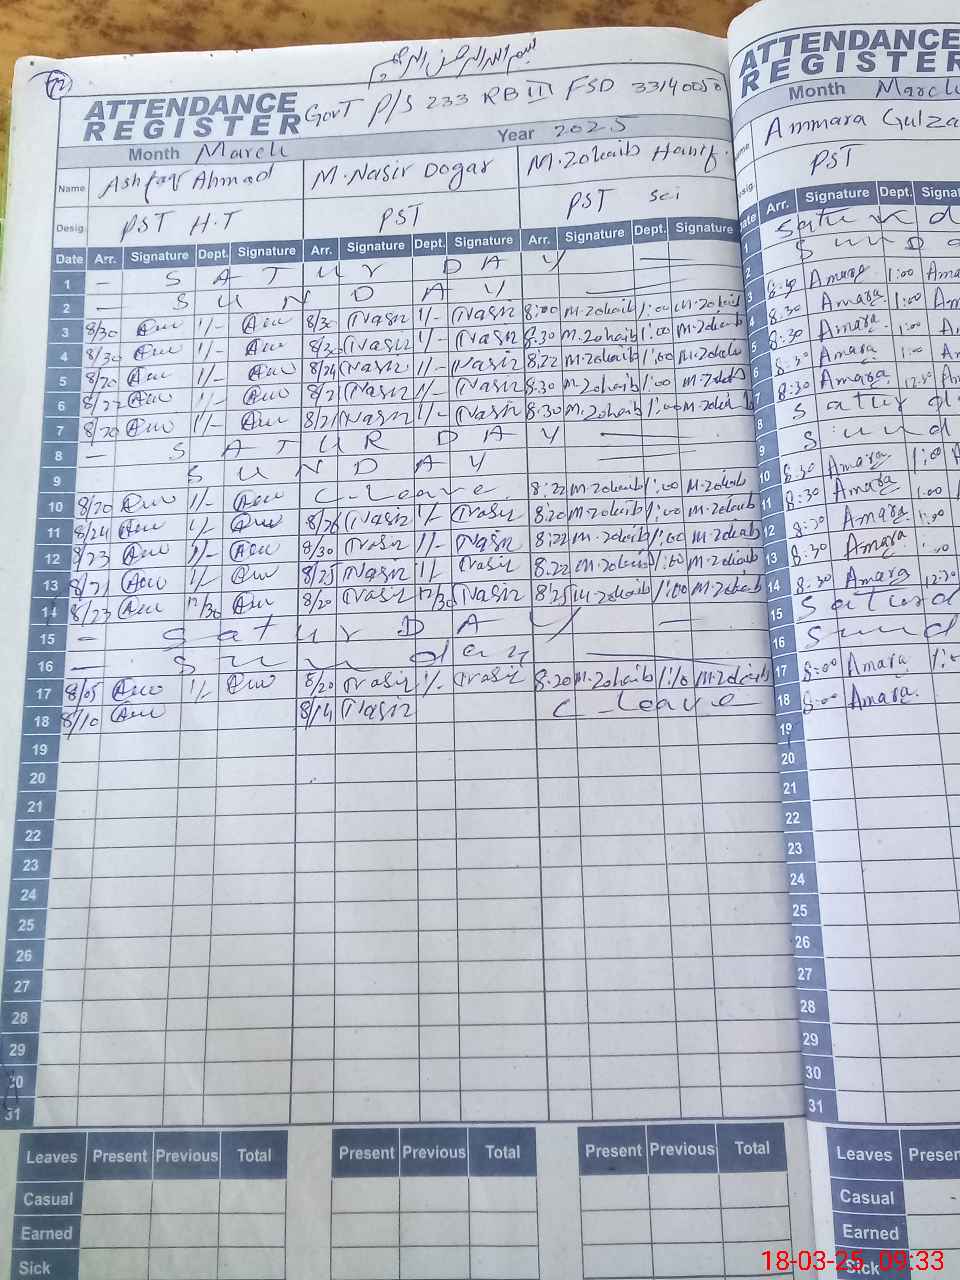 بسم اللہ الرحمن الرحیم
ATTENDANCE REGISTER
GovT P/S 233 RB III FSD 33140050
Month March Year 2025
Name Ashfaq Ahmad M. Nasir Dogar M. Zohaib Hanif
Desig. PST H.T PST PST Sci
Date Arr. Signature Dept. Signature Arr. Signature Dept. Signature Arr. Signature Dept. Signature
1 — S A T U r D A Y
2 — S U N D A Y
3 8/30 1/- 8/30 Nasir 1/- Nasir 8:00 M.Zohaib 1:00 M.Zohaib
4 8/30 1/- 8/30 Nasir 1/- Nasir 8:30 M.Zohaib 1:00 M.Zohaib
5 8/20 1/- 8/24 Nasir 1/- Nasir 8:22 M.Zohaib 1:00 M.Zohaib
6 8/22 1/- 8/21 Nasir 1/- Nasir 8:30 M.Zohaib 1:00 M.Zohaib
7 8/20 1/- 8/21 Nasir 1/- Nasir 8:30 M.Zohaib 1:00 M.Zohaib
8 — S A T U R D A Y
9 S U N D A Y
10 8/20 1/- C-Leave 8:22 M.Zohaib 1:00 M.Zohaib
11 8/24 1/- 8/26 Nasir 1/- Nasir 8:20 M.Zohaib 1:00 M.Zohaib
12 8/23 1/- 8/30 Nasir 1/- Nasir 8:22 M.Zohaib 1:00 M.Zohaib
13 8/21 1/- 8/25 Nasir 1/- Nasir 8.22 M.Zohaib 1:00 M.Zohaib
14 8/23 12/30 8/20 Nasir 12/30 Nasir 8:25 M.Zohaib 1:00 M.Zohaib
15 — S a t u r D A Y
16 — S u n d a y
17 8/05 1/- 8/20 Nasir 1/- Nasir 8:20 M.Zohaib M.Zohaib
18 8/10 8/14 Nasir C-Leave
19
20
21
22
23
24
25
26
27
28
29
30
31
Leaves Present Previous Total Present Previous Total Present Previous Total
Casual
Earned
Sick
ATTENDANCE
REGISTER
Month March
Ammara Gulza
PST
Date Arr. Signature Dept. Signat
1 Satu r d
2 S u n D a
3 8:30 Amara 1:00 Ama
4 8:30 Amara 1:00
5 8:30 Amara 1:00
6 8:30 Amara 1:00
7 8:30 Amara 12:30
8 S a t u r d
9 S u n d
10 8:30 Amara 1:00
11 8:30 Amara 1:00
12 Amara
13 8:30 Amara
14 8:30 Amara 12:30
15 S a t u r d
16 S u n d
17 8:00 Amara
18 8:00 Amara
19
20
21
22
23
24
25
26
27
28
29
30
31
Leaves Presen
Casual
Earned
Sick
18-03-25 09:33